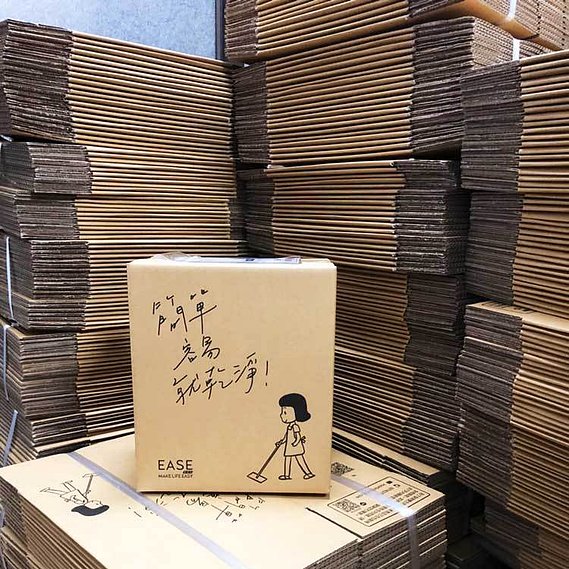 簡單
容易
就乾淨!
EASE
MAKE LIFE EASY